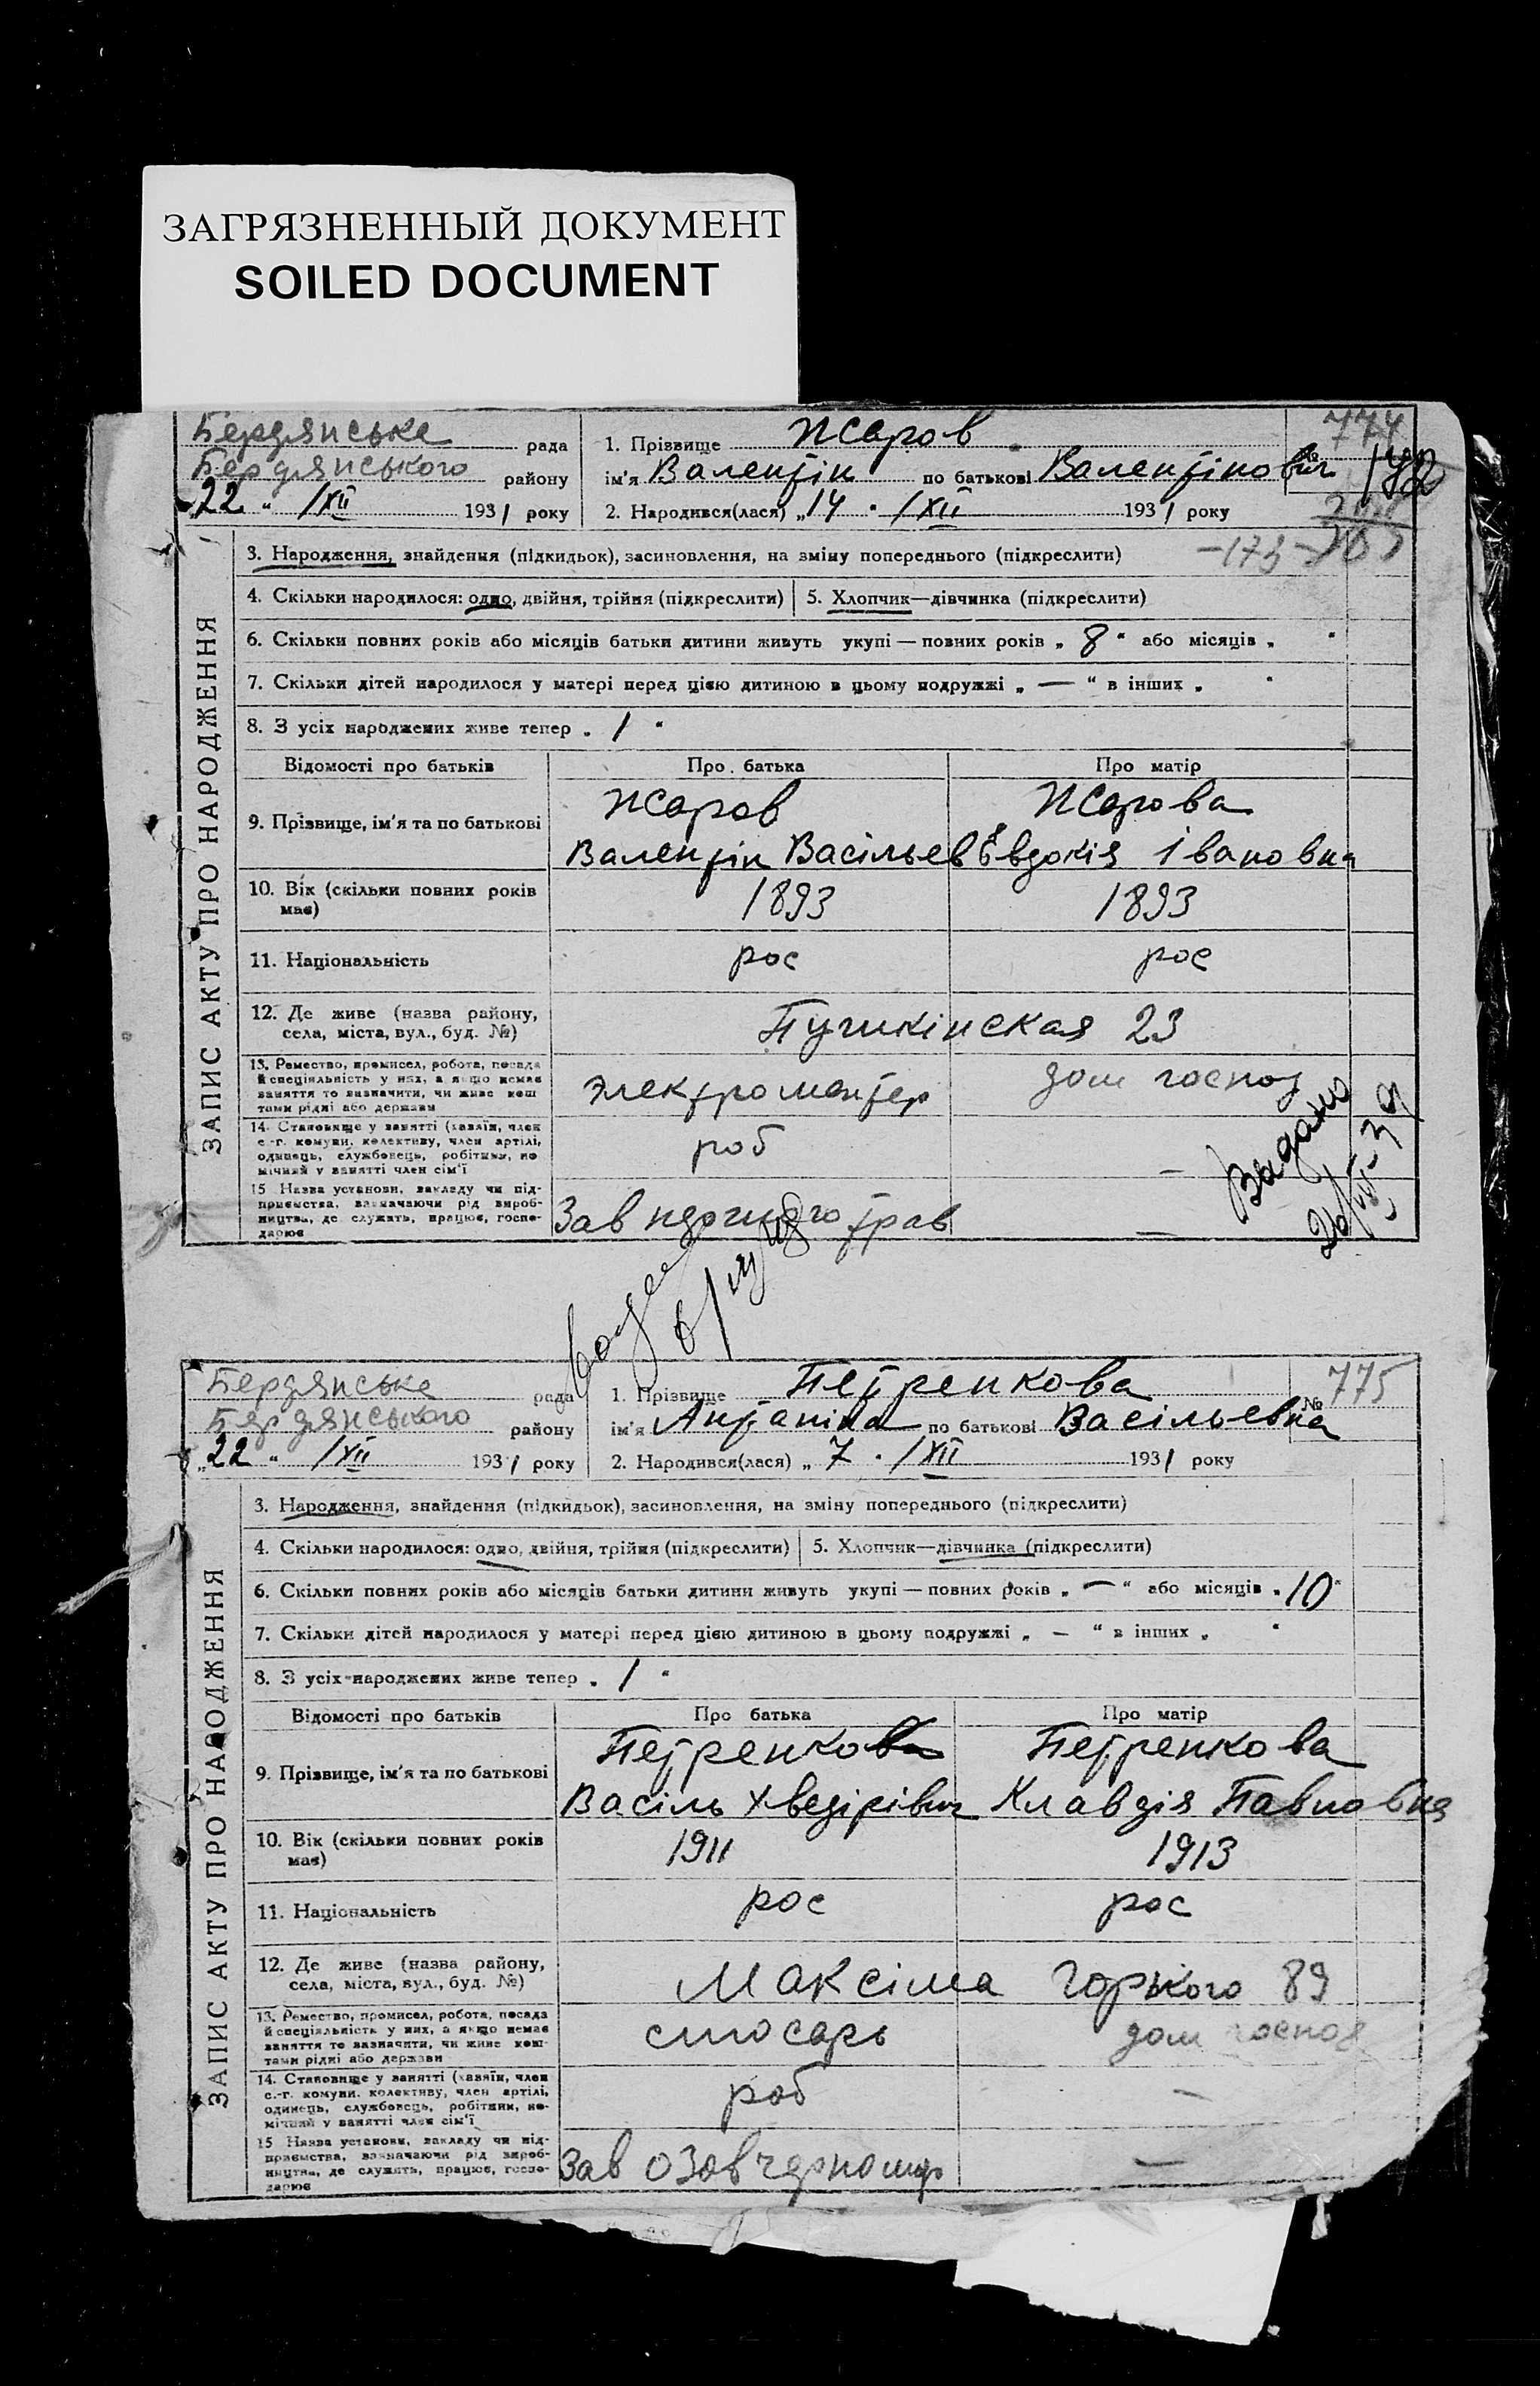 ЗАГРЯЗНЕННЫЙ ДОКУМЕНТ
SOILED DOCUMENT
Бердянська рада
Бердянського району
„22“ /XII 1931 року
1. Прізвище Жаров
774
ім'я Валентін по батькові Валентінович
№
2. Народився(лася) „14 /XII 1931 року
ЗАПИС АКТУ ПРО НАРОДЖЕННЯ
3. Народження, знайдення (підкидьок), засиновлення, на зміну попереднього (підкреслити)
-173-
4. Скільки народилося: одно, двійня, трійня (підкреслити) 5. Хлопчик—дівчинка (підкреслити)
6. Скільки повних років або місяців батьки дитини живуть укупі — повних років „ 8 “ або місяців „ “
7. Скільки дітей народилося у матері перед цією дитиною в цьому подружжі „ — “ в інших „ “
8. З усіх народжених живе тепер „ 1 “
Відомості про батьків Про батька Про матір
9. Прізвище, ім'я та по батькові
Жаров Жарова
Валентін Васільев Євдокія Івановна
10. Вік (скільки повних років має) 1893 1893
11. Національність рос рос
12. Де живе (назва району, села, міста, вул., буд. №) Пушкінская 23
13. Ремество, промисел, робота, посада
й спеціяльність у них, а якщо немає
заняття то зазначити, чи живе кош
тами рідні або держави
электромонтер дом господ
14. Становище у занятті (хазяїн, член
с.-г. комуни, колективу, член артілі,
одинець, службовець, робітник, по
мічний у занятті член сім'ї
роб —
15 Назва установи, закладу чи під-
приємства, зазначаючи рід вироб-
ництва, де служить, працює, госпо-
дарює
Зав трав —
Выдано
Бердянська рада
Бердянського району
„22“ /XII 1931 року
1. Прізвище Петренкова
№ 775
ім'я Антаніна по батькові Васільевна
2. Народився(лася) „ 7 /XII 1931 року
ЗАПИС АКТУ ПРО НАРОДЖЕННЯ
3. Народження, знайдення (підкидьок), засиновлення, на зміну попереднього (підкреслити)
4. Скільки народилося: одно, двійня, трійня (підкреслити) 5. Хлопчик—дівчинка (підкреслити)
6. Скільки повних років або місяців батьки дитини живуть укупі — повних років „ — “ або місяців „ 10 “
7. Скільки дітей народилося у матері перед цією дитиною в цьому подружжі „ — “ в інших „ “
8. З усіх народжених живе тепер „ 1 “
Відомості про батьків Про батька Про матір
9. Прізвище, ім'я та по батькові
Петренкова Петренкова
Васіль Хведірівич Клавдія Павловна
10. Вік (скільки повних років має) 1911 1913
11. Національність рос рос
12. Де живе (назва району, села, міста, вул., буд. №) Максіма Горького 89
13. Ремество, промисел, робота, посада
й спеціяльність у них, а якщо немає
заняття то зазначити, чи живе кош-
тами рідні або держави
слюсарь дом господ
14. Становище у занятті (хазяїн, член
с.-г. комуни, колективу, член артілі,
одинець, службовець, робітник, по-
мічний у занятті член сім'ї
роб —
15 Назва установи, закладу чи під-
приємства, зазначаючи рід вироб-
ництва, де служить, працює, госпо-
дарює
Зав —